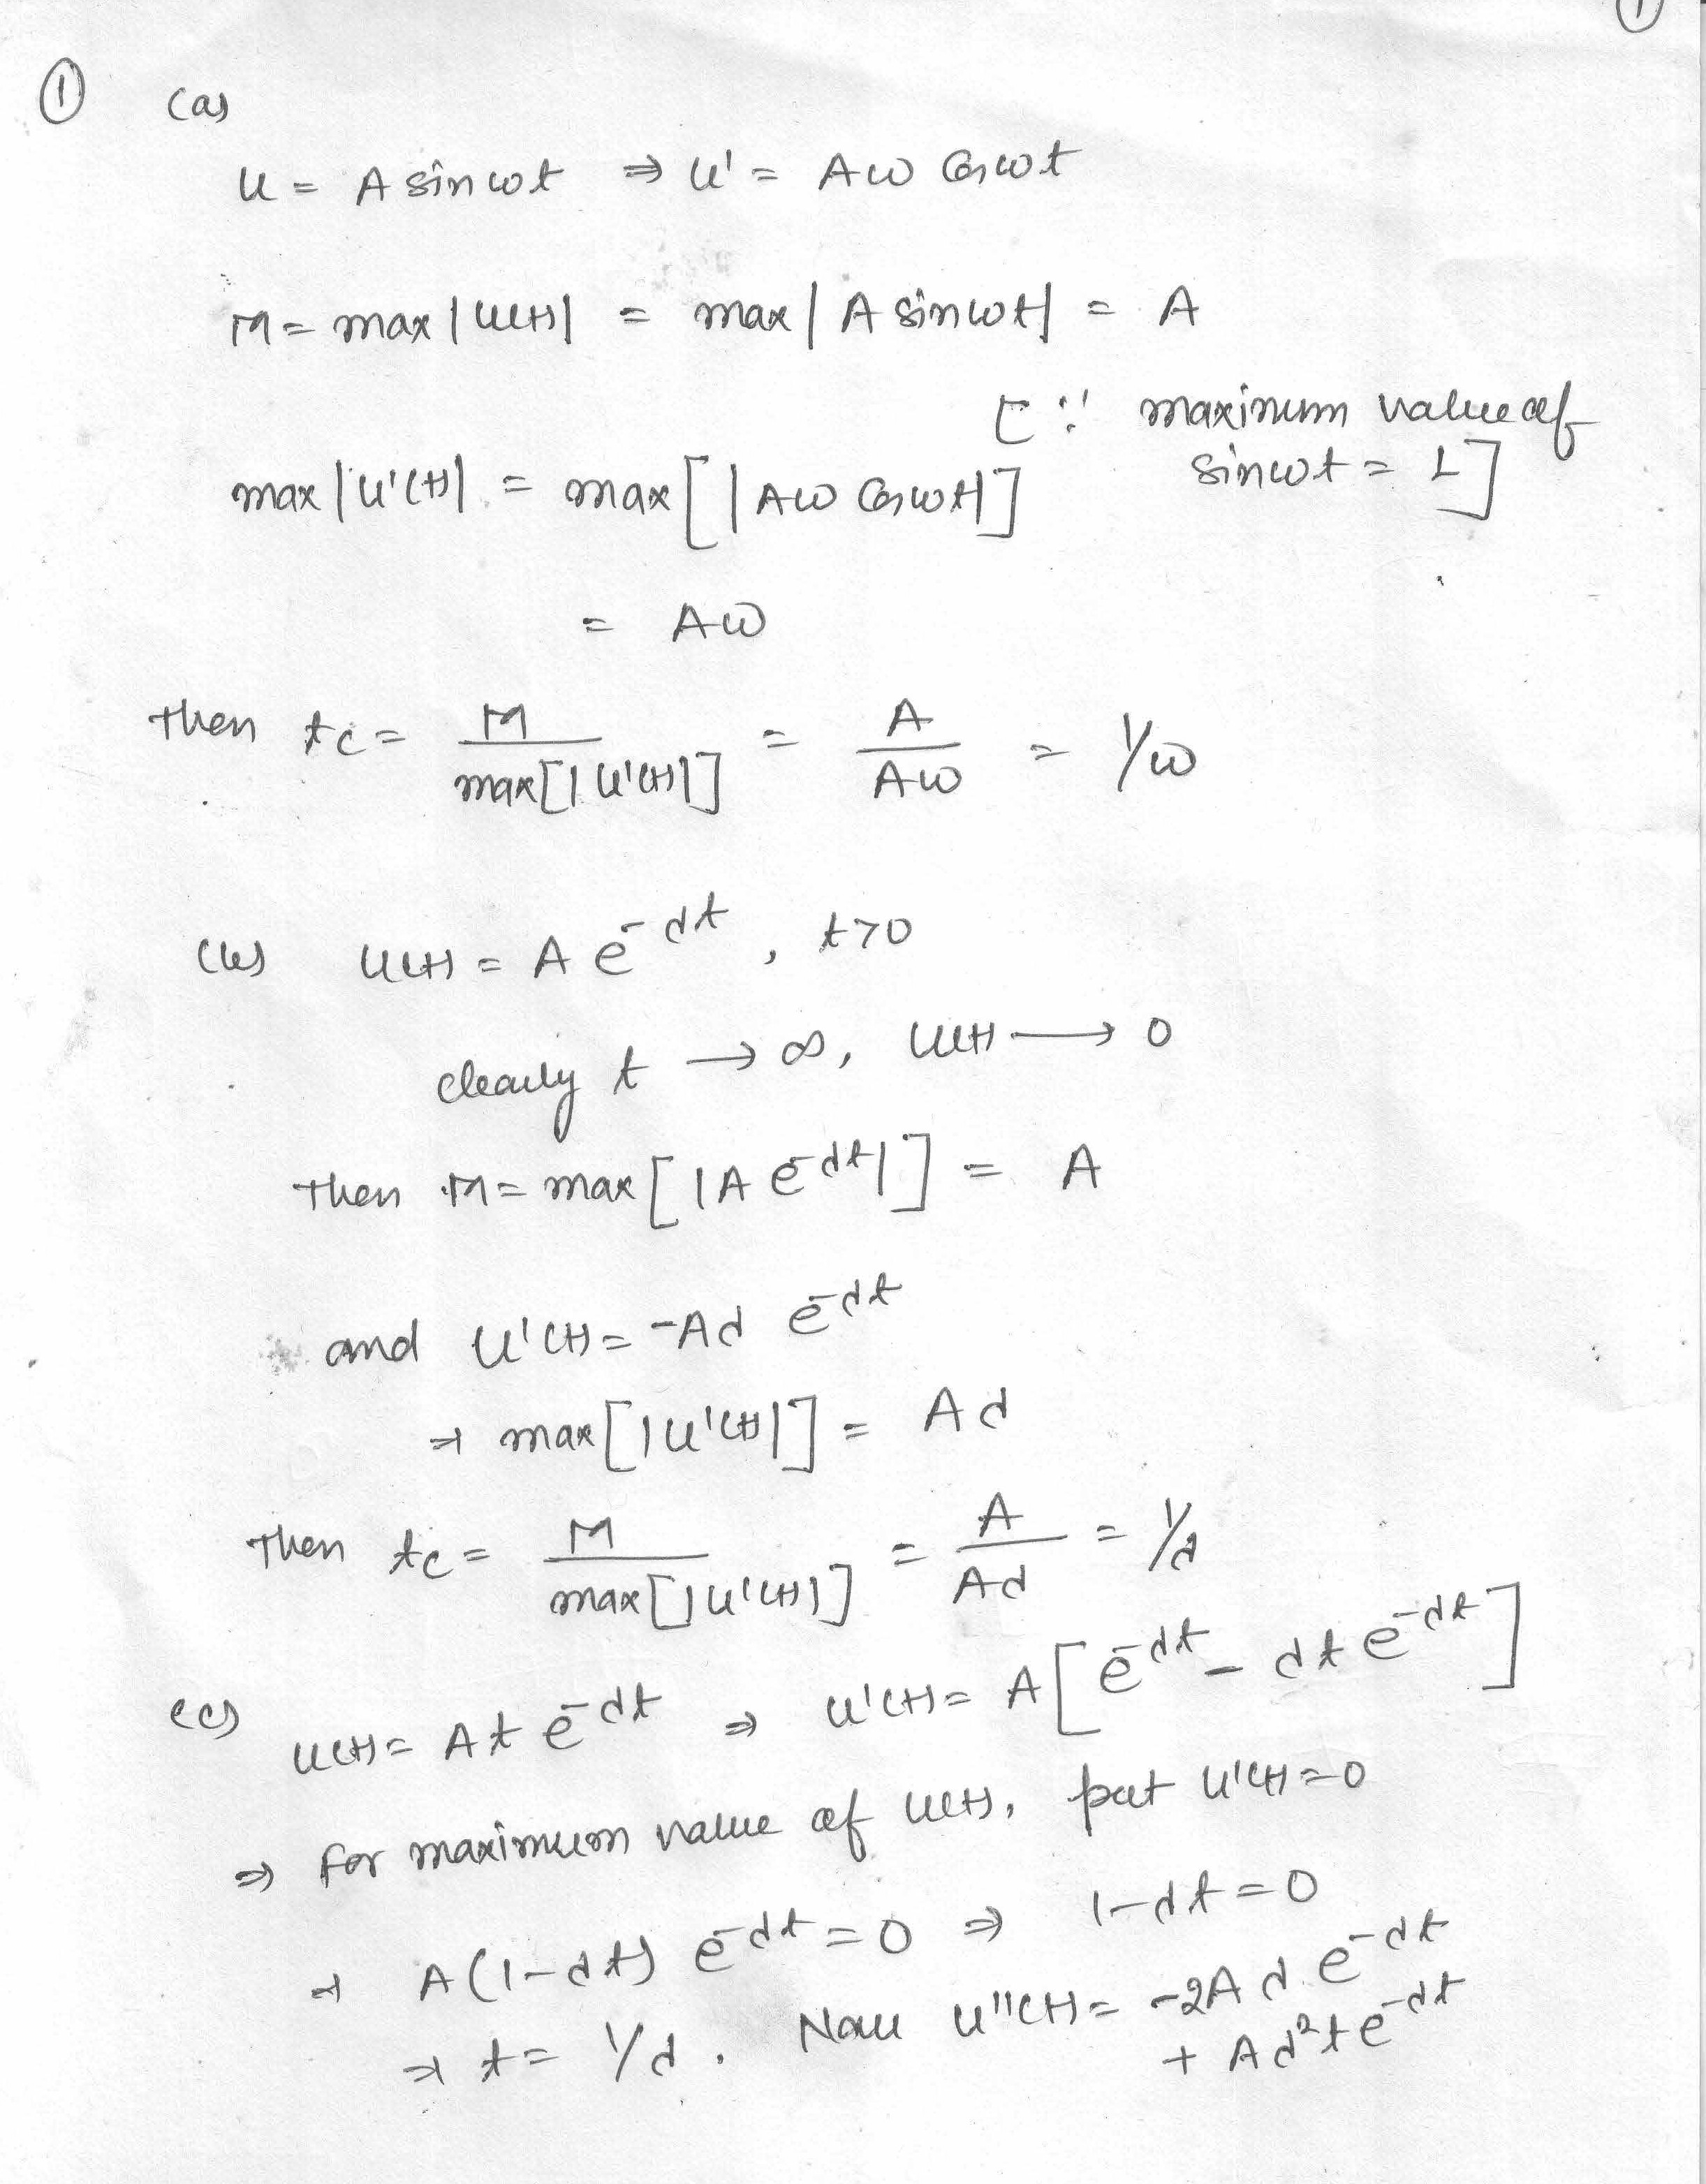 1
① (a)
u = A sin ωt ⇒ u' = Aω cos ωt
M = max |u(t)| = max |A sin ωt| = A
[∵ maximum value of
sin ωt = 1]
max |u'(t)| = max [|Aω cos ωt|]
= Aω
Then tc = M / max[|u'(t)|] = A / Aω = 1/ω
(b) u(t) = A e^-dt , t>0
clearly t → ∞, u(t) → 0
Then M = max [|A e^-dt|] = A
and u'(t) = -Ad e^-dt
⇒ max [|u'(t)|] = Ad
Then tc = M / max[|u'(t)|] = A / Ad = 1/d
(c) u(t) = At e^-dt ⇒ u'(t) = A[e^-dt - dt e^-dt]
⇒ for maximum value of u(t), put u'(t)=0
⇒ A(1-dt) e^-dt = 0 ⇒ 1-dt=0
⇒ t = 1/d . Now u''(t) = -2Ad. e^-dt
+ Ad²te^-dt